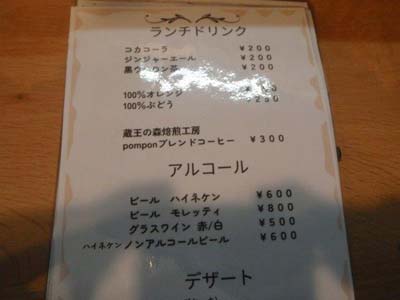 ランチドリンク
コカコーラ ￥200
ジンジャーエール ￥200
黒ウーロン茶 ￥200
100%オレンジ
100%ぶどう ￥250
蔵王の森焙煎工房
pomponブレンドコーヒー ￥300
アルコール
ビール ハイネケン ￥600
ビール モレッティ ￥800
グラスワイン 赤/白 ￥500
ハイネケン ノンアルコールビール ￥600
デザート